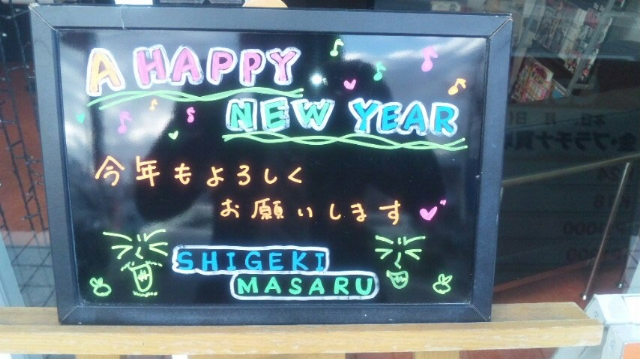 A HAPPY
NEW YEAR
今年もよろしく
お願いします
SHIGEKI
MASARU